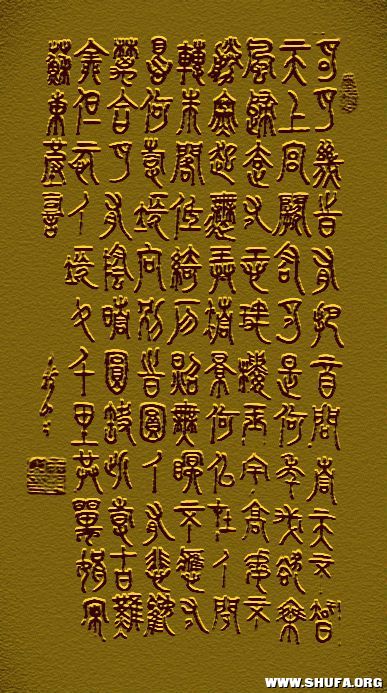 明月幾時有把酒問青天不知
天上宮闕今夕是何年我欲乘
風歸去又恐瓊樓玉宇高處不
勝寒起舞弄清影何似在人間
轉朱閣低綺戶照無眠不應有
恨何事長向別時圓人有悲歡
離合月有陰晴圓缺此事古難
全但願人長久千里共嬋娟宋
蘇東坡詞
WWW.SHUFA.ORG